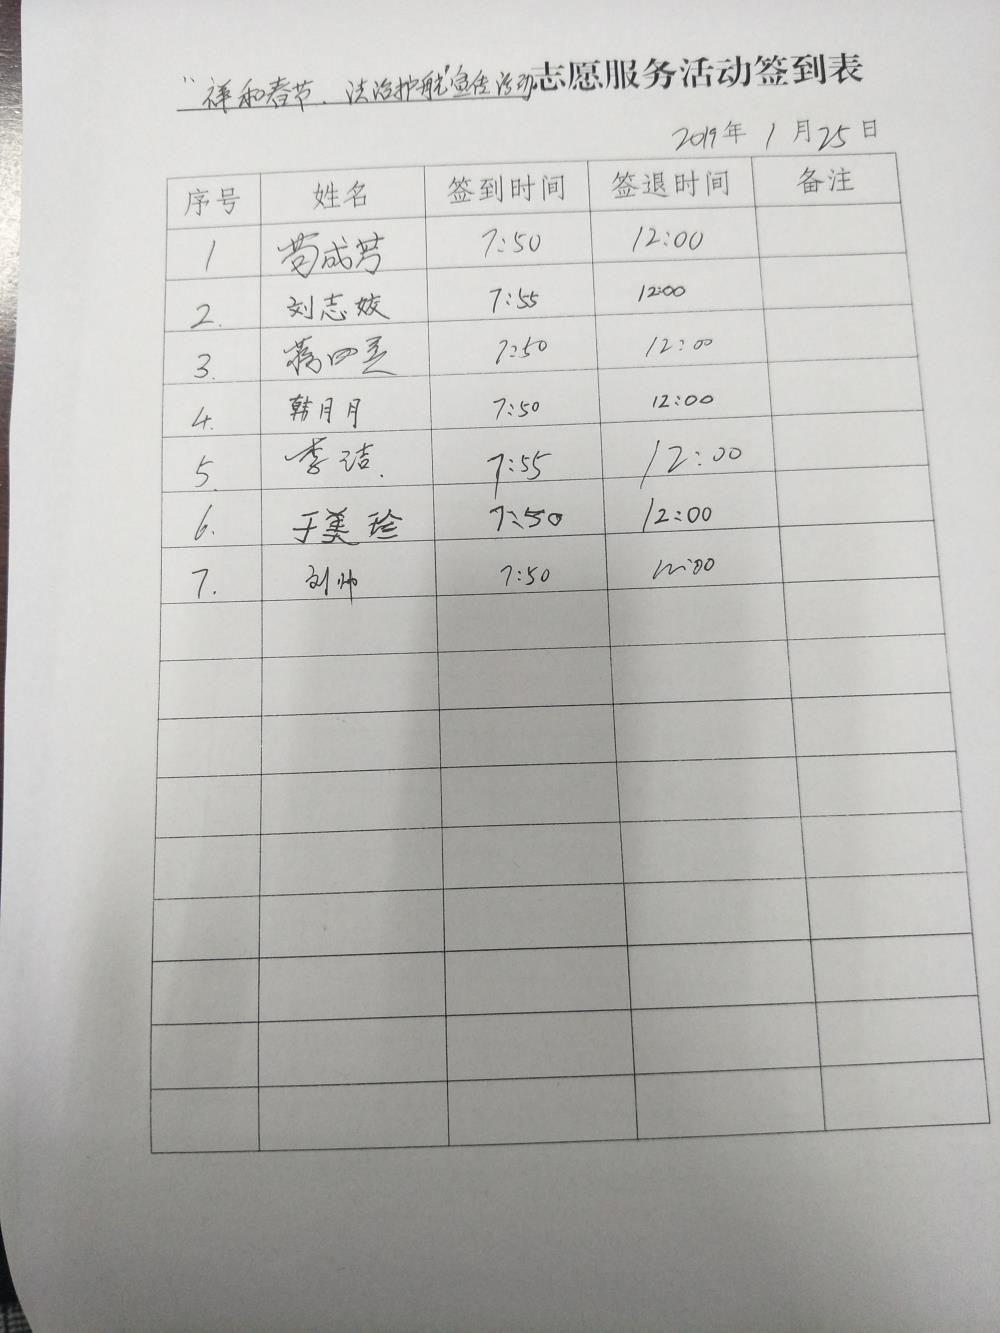 “祥和春节、法治护航”宣传活动志愿服务活动签到表
2019年 1月25日
序号 姓名 签到时间 签退时间 备注
1 苟成芳 7:50 12:00
2. 刘志姣 7:55 12:00
3. 7:50 12:00
4. 韩月月 7:50 12:00
5. 李洁. 7:55 12:00
6. 于美珍 7:50 12:00
7. 刘帅 7:50 12:00